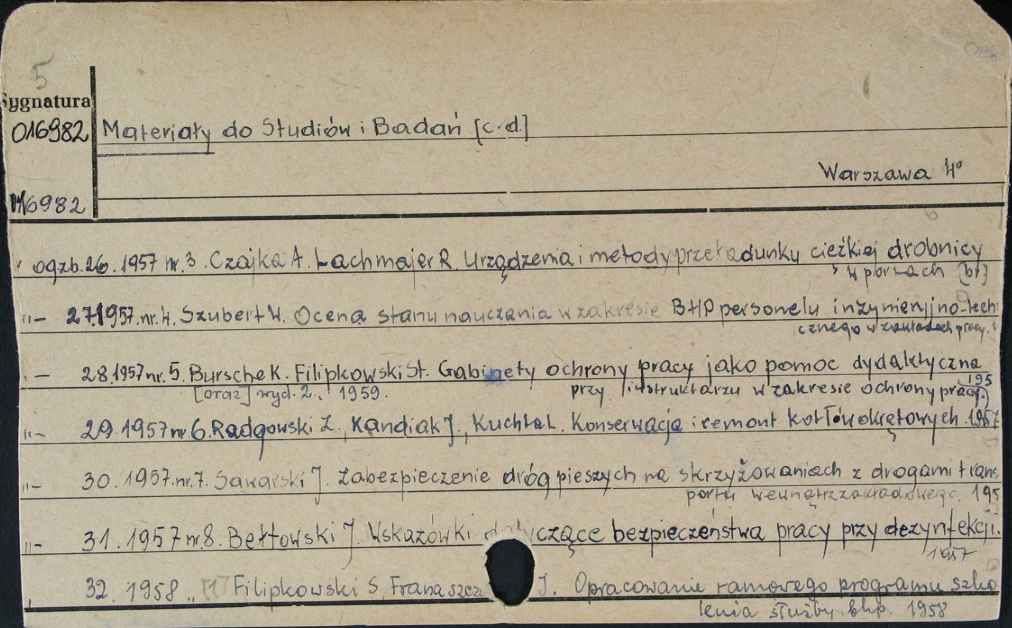 5
Sygnatura
016982 Materiały do Studiów i Badań [c.d.]
Warszawa 4°
16982
ogzb. 26. 1957 nr. 3. Czajka A. Lachmajer R. Urządzenia i metody przeładunku ciężkiej drobnicy
w portach [br]
"— 27.1957. nr. 4. Szubert W. Ocena stanu nauczania w zakresie BHP personelu inżynieryjno-tech
cznego w zakładach pracy.
"— 28.1957 nr. 5. Bursche K. Filipkowski St. Gabinety ochrony pracy jako pomoc dydaktyczna
[oraz] wyd. 2. 1959. przy instruktarzu w zakresie ochrony pracy.) 195
"— 29.1957 nr 6. Radgowski Z., Kandiak J., Kuchta L. Konserwacja i remont kotłów okrętowych. 1957
"— 30.1957. nr. 7. Sawarski J. Zabezpieczenie dróg pieszych na skrzyżowaniach z drogami trans
portu wewnątrzzakładowego. 195
"— 31.1957 nr 8. Bełtowski J. Wskazówki dotyczące bezpieczeństwa pracy przy dezynfekcji.
1957
32. 1958 „ [1] Filipkowski S, Franaszcz J. Opracowanie ramowego programu szko
lenia służby bhp. 1958